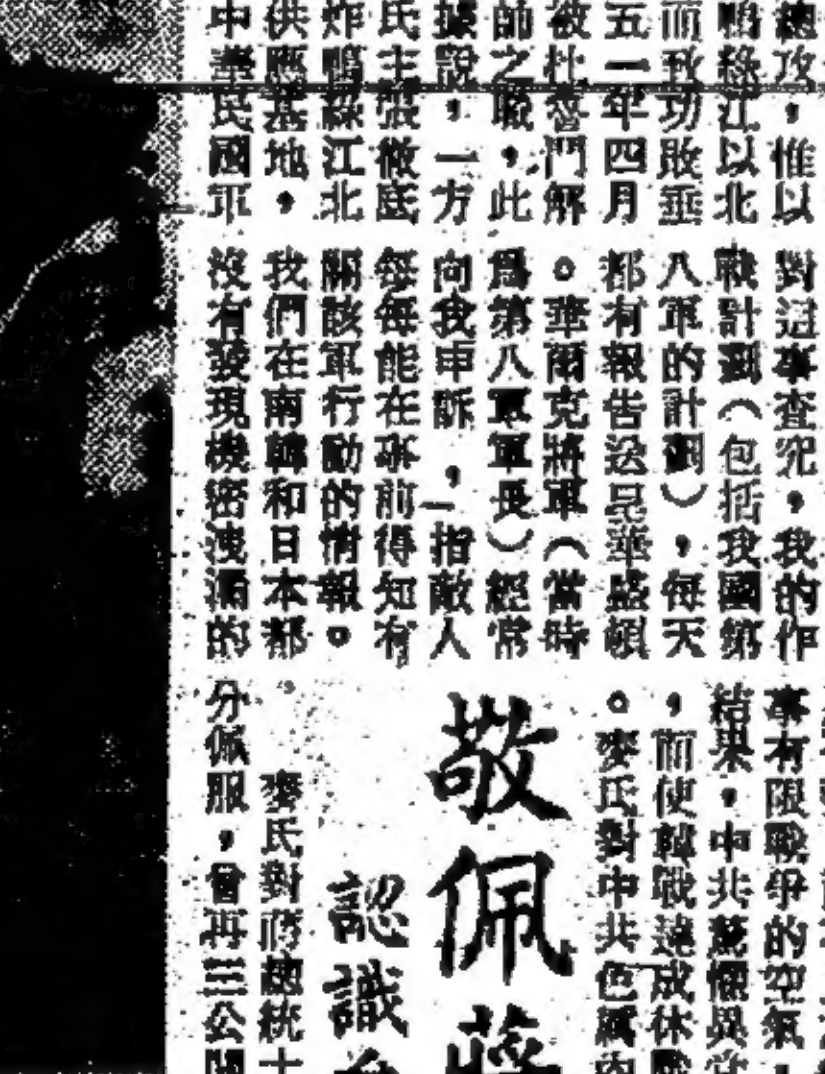 總攻,惟以
鴨綠江以北
而致功敗垂
五一年四月
被杜魯門解
師之職,此
據說,一方
氏主張徹底
炸鴨綠江北
供應基地,
中華民國軍
對這事查究,我的作
戰計劃(包括我國第
八軍的計劃),每天
都有報告送呈華盛頓
。華爾克將軍(當時
爲第八軍軍長)經常
向我申訴,指敵人
每每能在事前得知有
關該軍行動的情報。
我們在南韓和日本都
沒有發現機密洩漏的
事有限戰爭的空氣,
結果,中共驚懼異常
,而使韓戰達成休戰
。麥氏對中共色厲內
敬佩蔣
認識
麥氏對蔣總統十
分佩服,曾再三公開